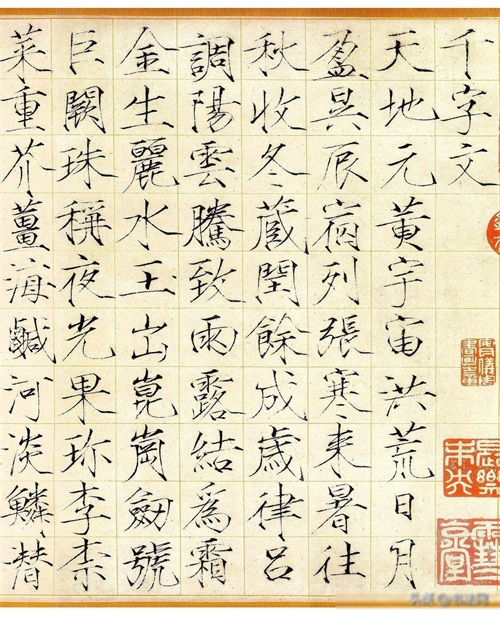 千字文
天地元黃宇宙洪荒日月
盈昃辰宿列張寒来暑往
秋收冬蔵閏餘成歲律吕
調陽雲騰致雨露結爲霜
金生麗水玉出崑崗劒號
巨闕珠稱夜光果珎李柰
菜重芥薑海鹹河淡鱗潜